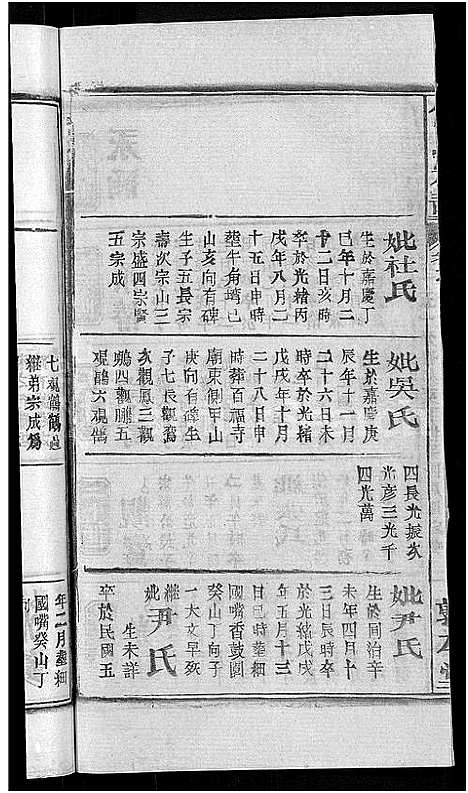 妣杜氏
生於嘉慶丁
巳年十月二
十二日亥時
卒於光緒丙
戌年八月二
十五日申時
塟牛角壋巳
山亥向有碑
生子五長宗
壽次宗山三
宗盛四宗賢
五宗成
妣吳氏
生於嘉慶庚
辰年十一月
二十六日未
時卒於光緒
戊戌年十月
二十八日申
時葬百福寺
廟東側甲山
庚向有碑生
子七長觀鶩
次觀鳳三觀
鵷四觀鵬五
觀鶴六觀鶴
四長光振次
光彥三光千
四光萬
妣尹氏
生於同治辛
未年四月十
三日辰時卒
於光緒戊戌
年五月十三
日巳時塟細
國嘴香鼓園
癸山丁向子
一大文早殀
繼妣尹氏
生未詳
卒於民國五
七觀鶴過
繼弟宗成爲
年二月塟細
國嘴癸山丁
向